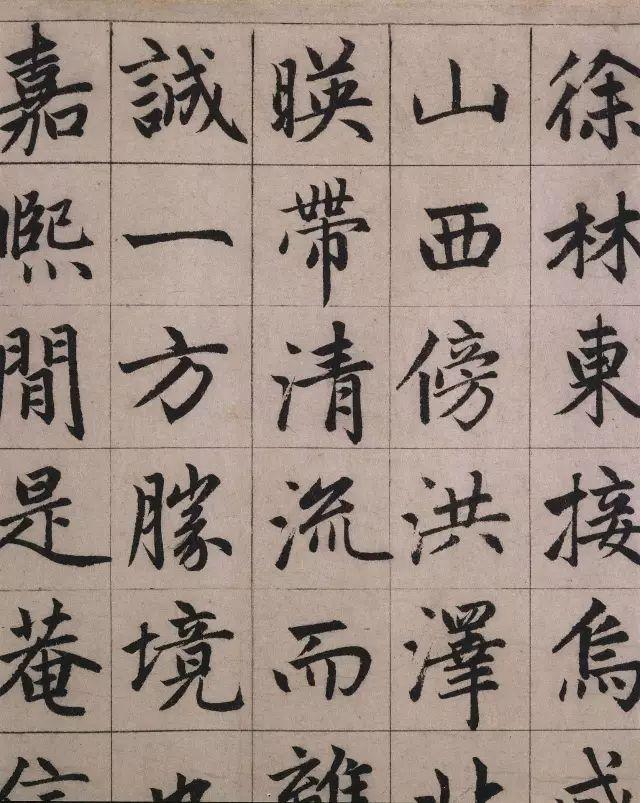 徐林東接烏
山西傍洪澤
暎帶清流而離
誠一方勝境也
嘉熙間是菴